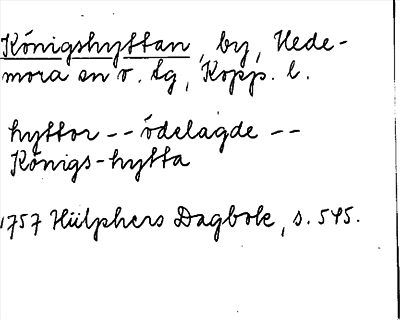 Königshyttan, by, Hede-
mora sn o. tg, Kopp. l.
hyttor -- ödelagde --
Königs-hytta
1757 Hülphers Dagbok, s. 545.